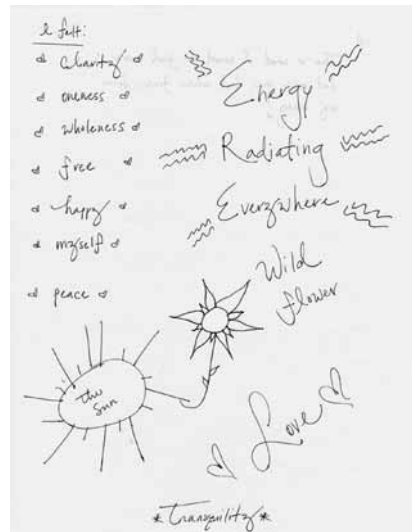 I felt:
clarity
oneness
wholeness
free
happy
myself
peace
Energy
Radiating
Everywhere
Wild
flower
the
sun
Love
*Tranquility*